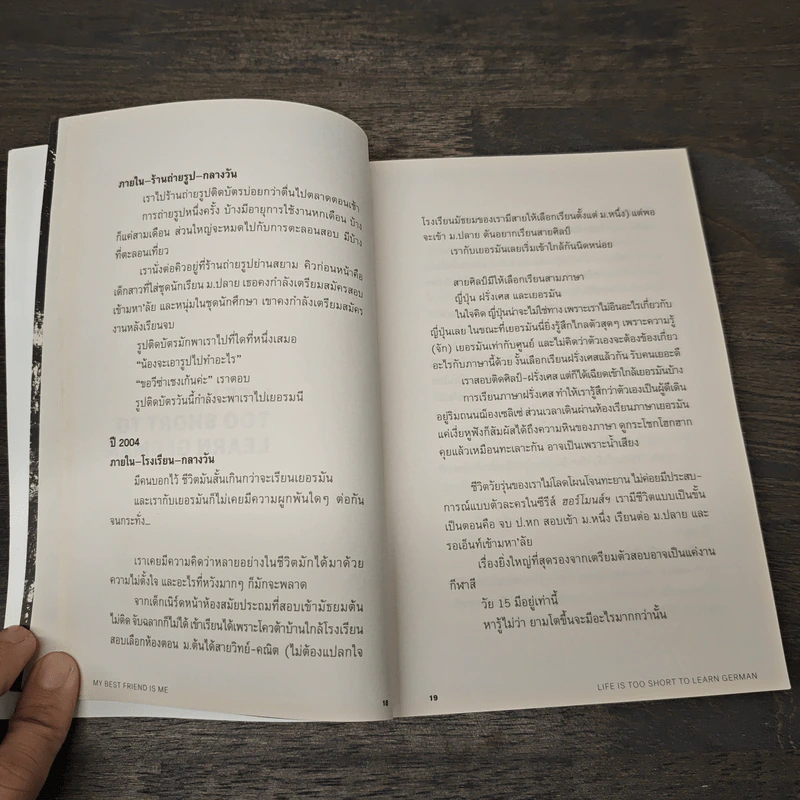 ภายใน–ร้านถ่ายรูป–กลางวัน
เราไปร้านถ่ายรูปติดบัตรบ่อยกว่าตื่นไปตลาดตอนเช้า
การถ่ายรูปหนึ่งครั้ง บ้างมีอายุการใช้งานหกเดือน บ้าง
ก็แค่สามเดือน ส่วนใหญ่จะหมดไปกับการตะลอนสอบ มีบ้าง
ที่ตะลอนเที่ยว
เรานั่งต่อคิวอยู่ที่ร้านถ่ายรูปย่านสยาม คิวก่อนหน้าคือ
เด็กสาวที่ใส่ชุดนักเรียน ม.ปลาย เธอคงกำลังเตรียมสมัครสอบ
เข้ามหา'ลัย และหนุ่มในชุดนักศึกษา เขาคงกำลังเตรียมสมัคร
งานหลังเรียนจบ
รูปติดบัตรมักพาเราไปที่ใดที่หนึ่งเสมอ
“น้องจะเอารูปไปทำอะไร”
“ขอวีซ่าเชงเก้นค่ะ” เราตอบ
รูปติดบัตรวันนี้กำลังจะพาเราไปเยอรมนี
ปี 2004
ภายใน–โรงเรียน–กลางวัน
มีคนบอกไว้ ชีวิตมันสั้นเกินกว่าจะเรียนเยอรมัน
และเรากับเยอรมันก็ไม่เคยมีความผูกพันใดๆ ต่อกัน
จนกระทั่ง...
เราเคยมีความคิดว่าหลายอย่างในชีวิตมักได้มาด้วย
ความไม่ตั้งใจ และอะไรที่หวังมากๆ ก็มักจะพลาด
จากเด็กเนิร์ดหน้าห้องสมัยประถมที่สอบเข้ามัธยมต้น
ไม่ติด จับฉลากก็ไม่ได้ เข้าเรียนได้เพราะโควต้าบ้านใกล้โรงเรียน
สอบเลือกห้องตอน ม.ต้นได้สายวิทย์-คณิต (ไม่ต้องแปลกใจ
MY BEST FRIEND IS ME
18
โรงเรียนมัธยมของเรามีสายให้เลือกเรียนตั้งแต่ ม.หนึ่ง) แต่พอ
จะเข้า ม.ปลาย ดันอยากเรียนสายศิลป์
เรากับเยอรมันเลยเริ่มเข้าใกล้กันนิดหน่อย
สายศิลป์มีให้เลือกเรียนสามภาษา
ญี่ปุ่น ฝรั่งเศส และเยอรมัน
ในใจคิด ญี่ปุ่นน่าจะไม่ใช่ทาง เพราะเราไม่อินอะไรเกี่ยวกับ
ญี่ปุ่นเลย ในขณะที่เยอรมันนี่ยิ่งรู้สึกไกลตัวสุดๆ เพราะความรู้
(จัก) เยอรมันเท่ากับศูนย์ และไม่คิดว่าตัวเองจะต้องข้องเกี่ยว
อะไรกับภาษานี้ด้วย งั้นเลือกเรียนฝรั่งเศสแล้วกัน รับคนเยอะดี
เราสอบติดศิลป์-ฝรั่งเศส แต่ก็ได้เฉียดเข้าใกล้เยอรมันบ้าง
การเรียนภาษาฝรั่งเศส ทำให้เรารู้สึกว่าตัวเองเป็นผู้ดีเดิน
อยู่ริมถนนฌ็องเซลิเซ่ ส่วนเวลาเดินผ่านห้องเรียนภาษาเยอรมัน
แค่เงี่ยหูฟังก็สัมผัสได้ถึงความหินของภาษา ดูกระโชกโฮกฮาก
คุยแล้วเหมือนทะเลาะกัน อาจเป็นเพราะน้ำเสียง
ชีวิตวัยรุ่นของเราไม่โลดโผนโจนทะยาน ไม่ค่อยมีประสบ-
การณ์แบบตัวละครในซีรีส์ ฮอร์โมนส์ฯ เรามีชีวิตแบบเป็นขั้น
เป็นตอนคือ จบ ป.หก สอบเข้า ม.หนึ่ง เรียนต่อ ม.ปลาย และ
รอเอ็นท์เข้ามหา'ลัย
เรื่องยิ่งใหญ่ที่สุดรองจากเตรียมตัวสอบอาจเป็นแค่งาน
กีฬาสี
วัย 15 มีอยู่เท่านี้
หารู้ไม่ว่า ยามโตขึ้นจะมีอะไรมากกว่านั้น
19
LIFE IS TOO SHORT TO LEARN GERMAN